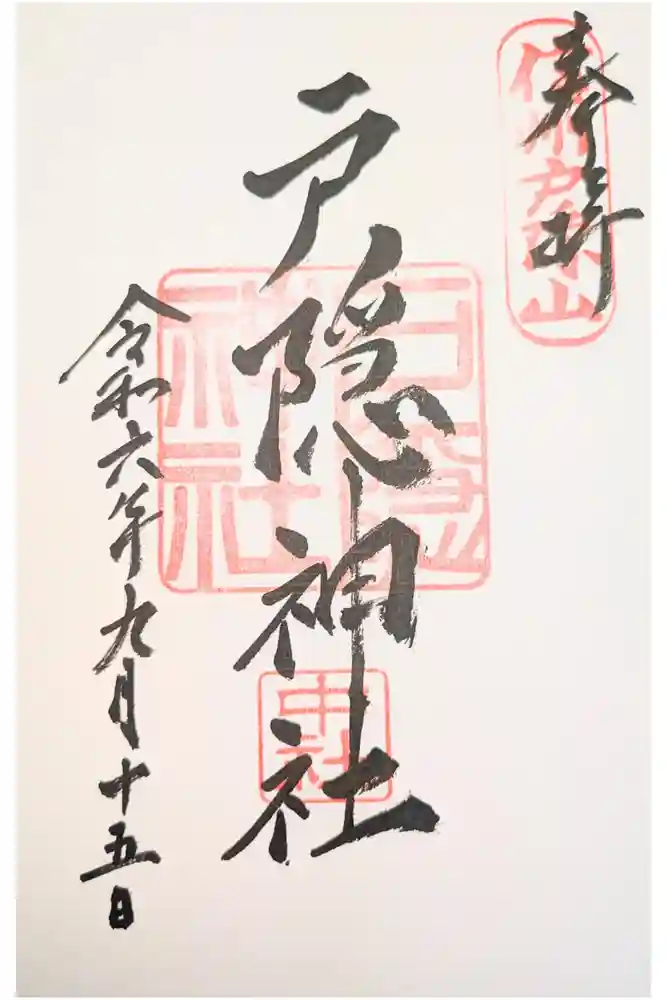 奉拝
信州戸隠山
戸隠神社
戸隠神社
中社
令和六年九月十五日